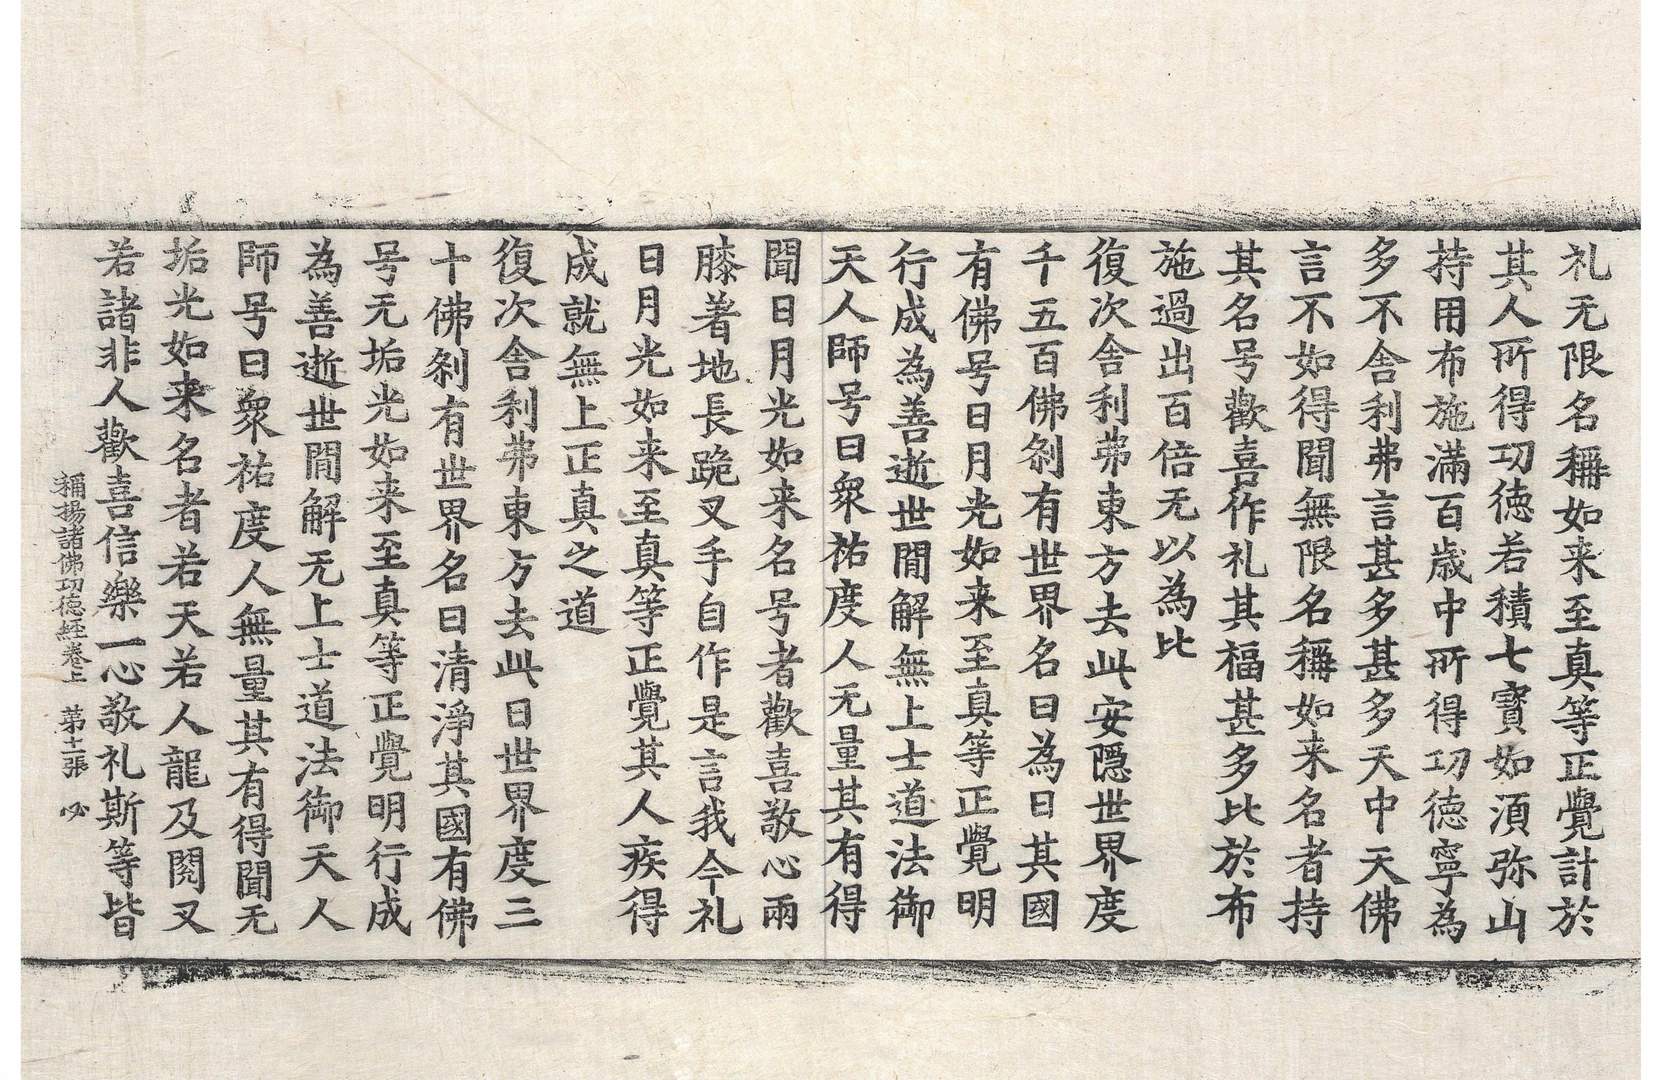 礼无限名稱如来至真等正覺計於
其人所得功德若積七寶如須弥山
持用布施滿百歲中所得功德寧為
多不舍利弗言甚多甚多天中天佛
言不如得聞無限名稱如来名者持
其名号歡喜作礼其福甚多比於布
施過出百倍无以為比
復次舍利弗東方去此安隱世界度
千五百佛剎有世界名曰為日其國
有佛号日月光如来至真等正覺明
行成為善逝世間解無上士道法御
天人師号曰衆祐度人无量其有得
聞日月光如来名号者歡喜敬心兩
膝著地長跪叉手自作是言我今礼
日月光如来至真等正覺其人疾得
成就無上正真之道
復次舍利弗東方去此日世界度三
十佛剎有世界名曰清淨其國有佛
号无垢光如来至真等正覺明行成
為善逝世間解无上士道法御天人
師号曰衆祐度人無量其有得聞无
垢光如来名者若天若人龍及閱叉
若諸非人歡喜信樂一心敬礼斯等皆
稱揚諸佛功德經卷上 第十二張